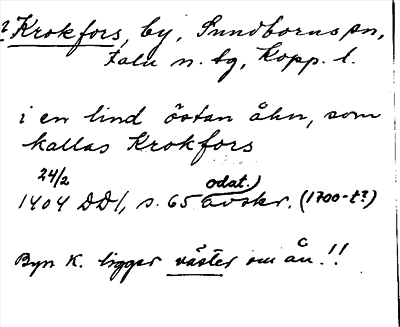 ? Krokfors, by, Sundborns sn,
Falu n. tg, Kopp. l.
i en lind östan åhn, som
kallas Krokfors
24/2
1404 DD1, s. 65 avskr. (odat.) (1700-t?)
Byn K. ligger väster om ån!!